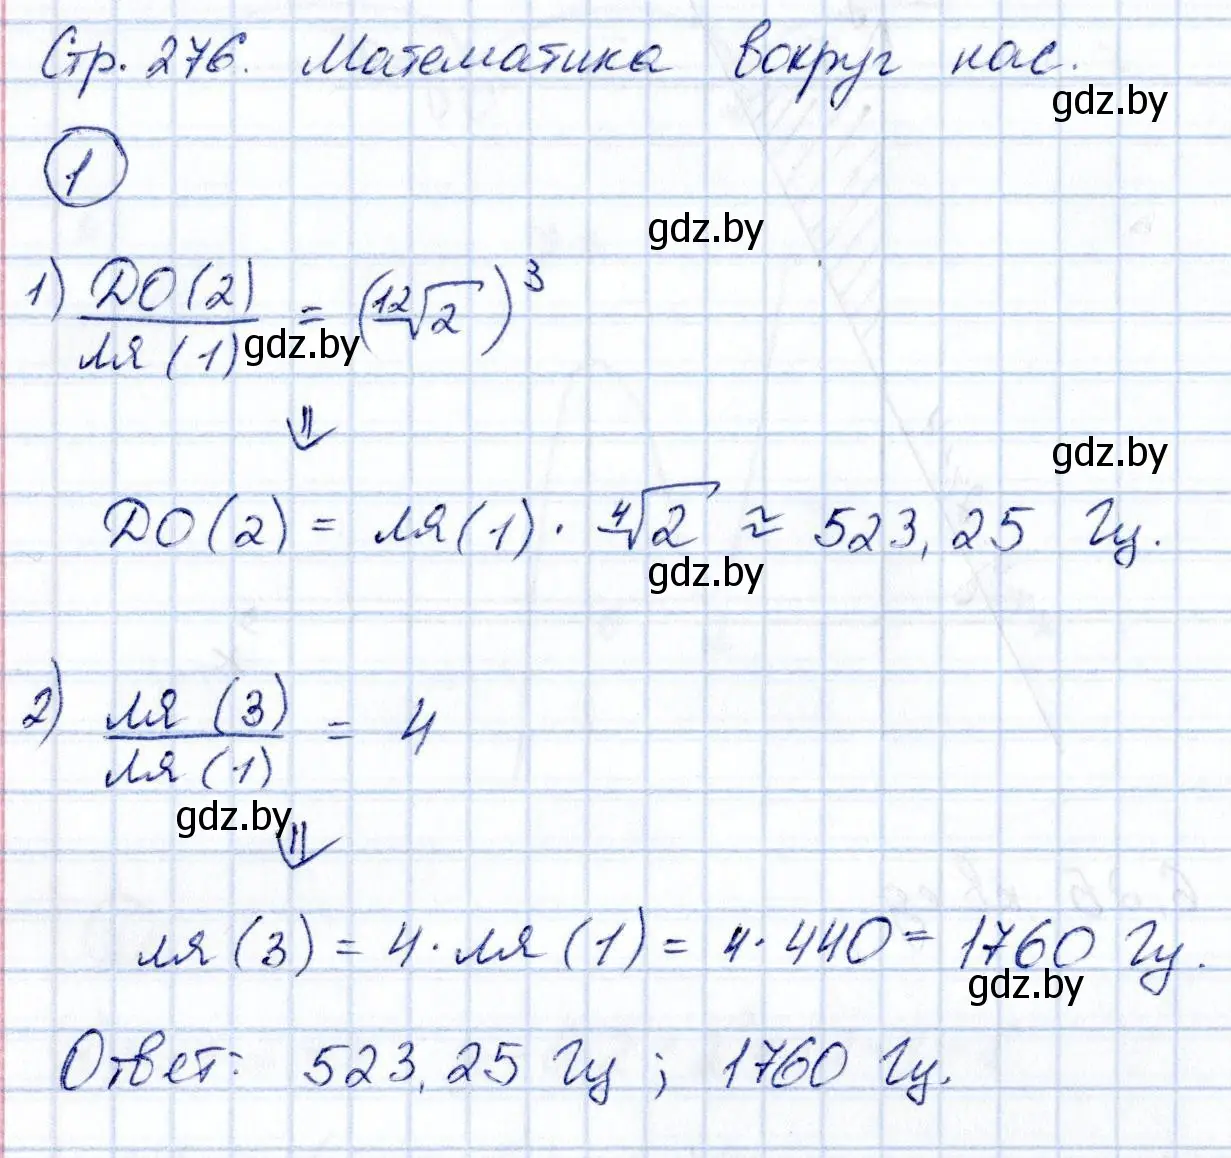 Стр. 276. Математика вокруг нас.
gdz.by
1
gdz.by
1) ДО(2)/ля(1) = (¹²√2)³
gdz.by
⇓
gdz.by
ДО(2) = ля(1) · ⁴√2 ≈ 523,25 Гц.
gdz.by
2) ля(3)/ля(1) = 4
gdz.by
⇓
ля(3) = 4·ля(1) = 4·440 = 1760 Гц.
gdz.by
Ответ: 523,25 Гц; 1760 Гц.